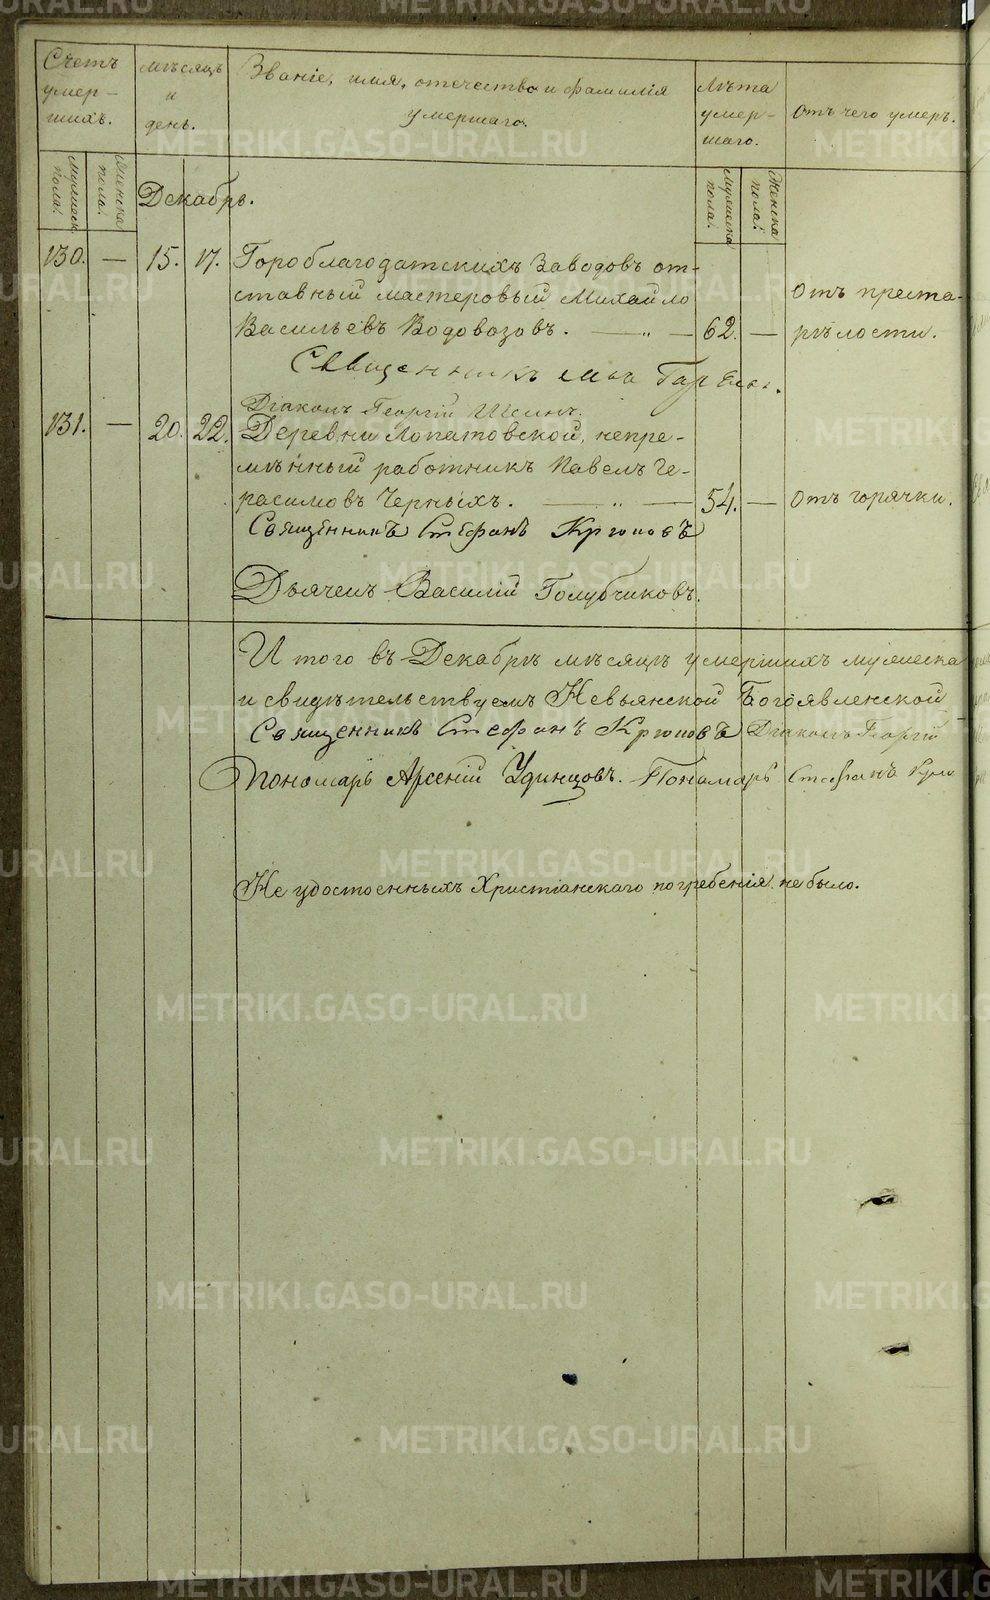 Счетъ умер-шихъ.
мѣсяцъ и день.
Званіе, имя, отечество и фамилія
умершаго.
Лѣта умер-шаго.
Отъ чего умеръ.
Мужеска пола.
Женска пола.
Декабрь.
Мужеска пола.
Женска пола.
130. — 15. 17. Гороблагодатскихъ Заводовъ от-
ставный мастеровый Михайло
Отъ преста-
Васильевъ Водовозовъ. — „ — 62. —
рѣлости.
Священникъ
Діаконъ Георгій
131. — 20. 22. Деревни Лопатовской, непре-
мѣнный работникъ Павелъ Ге-
расимовъ Черныхъ. — „ — 54. — отъ горячки.
Священникъ Стефанъ Крюковъ
Дьячекъ Василій Голубчиковъ.
Итого въ Декабрѣ мѣсяцѣ умершихъ мужеска
и свидѣтельствуемъ Невьянской Богоявленской
Священникъ Стефанъ Крюковъ Діаконъ Георгій
Пономарь Арсеній Удинцовъ. Пономарь Стефанъ
Не удостоенныхъ Христіанскаго погребенія не было.
METRIKI.GASO-URAL.RU